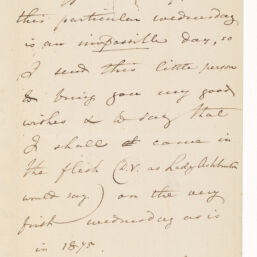 this particular wednesday
is an impossible day, so
I send this little person
to bring you my good
wishes & to say that
I shall come in
the flesh (D.V. as Lady Ashburton
would say) on the very
first wednesday as is
in 1875.